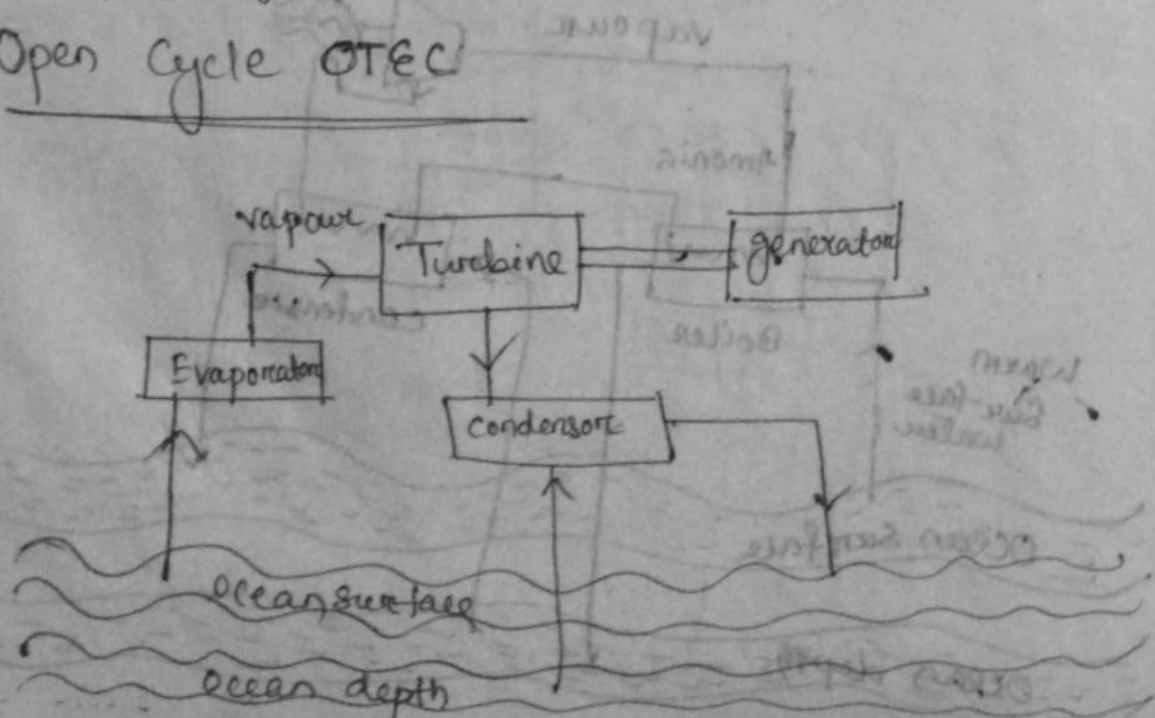 Open Cycle OTEC
vapour
Turbine
generator
Evaporator
condensor
ocean surface
ocean depth